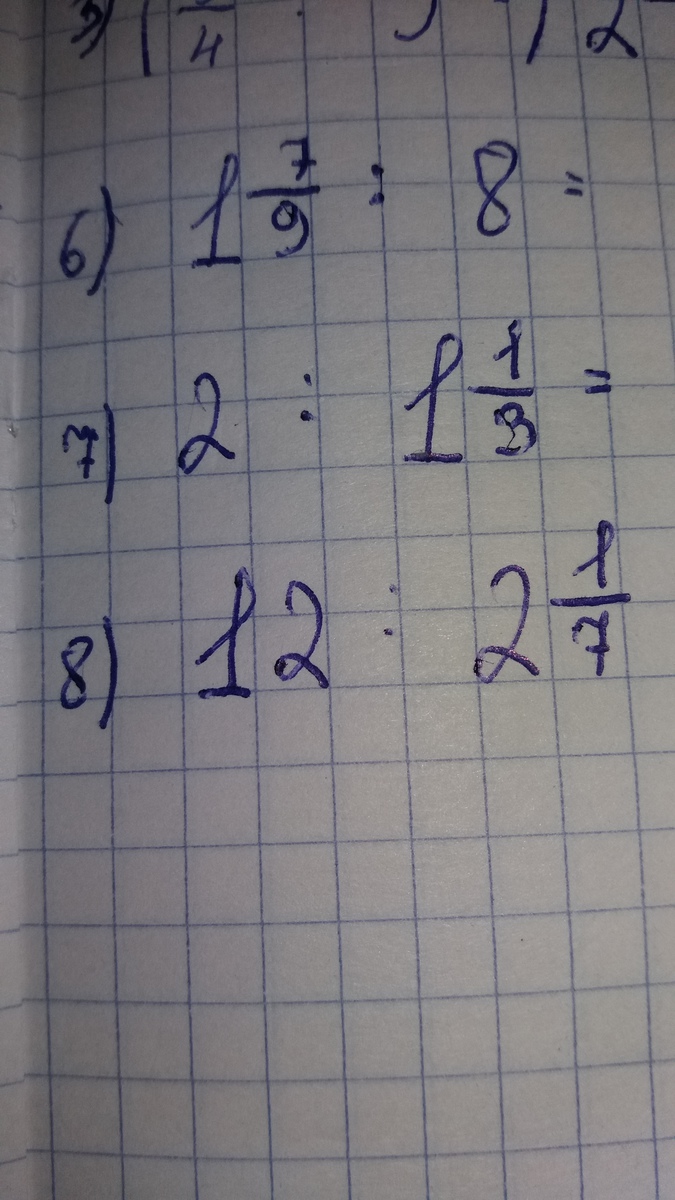 6) 1 7/9 : 8 =
7) 2 : 1 1/3 =
8) 12 : 2 1/7